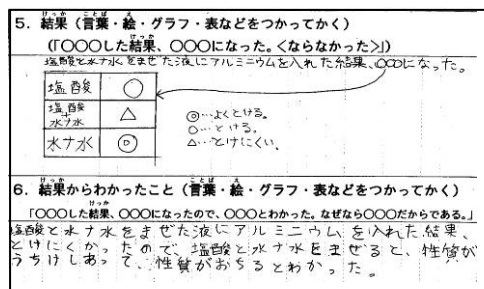 5. 結果（言葉・絵・グラフ・表などをつかってかく）
(「〇〇〇した結果、〇〇〇になった。<ならなかった>」)
塩酸と水ナ水をまぜた液にアルミニウムを入れた結果、〇〇〇になった。
塩酸 ○
塩酸+水ナ水 △
水ナ水 ◎
◎…よくとける。
○…とける。
△…とけにくい。
6. 結果からわかったこと（言葉・絵・グラフ・表などをつかってかく）
「〇〇〇した結果、〇〇〇になったので、〇〇〇とわかった。なぜなら〇〇〇だからである。」
塩酸と水ナ水をまぜた液にアルミニウムを入れた結果、
とけにくかったので、塩酸と水ナ水をまぜると、性質が
うちけしあって、性質がおちるとわかった。